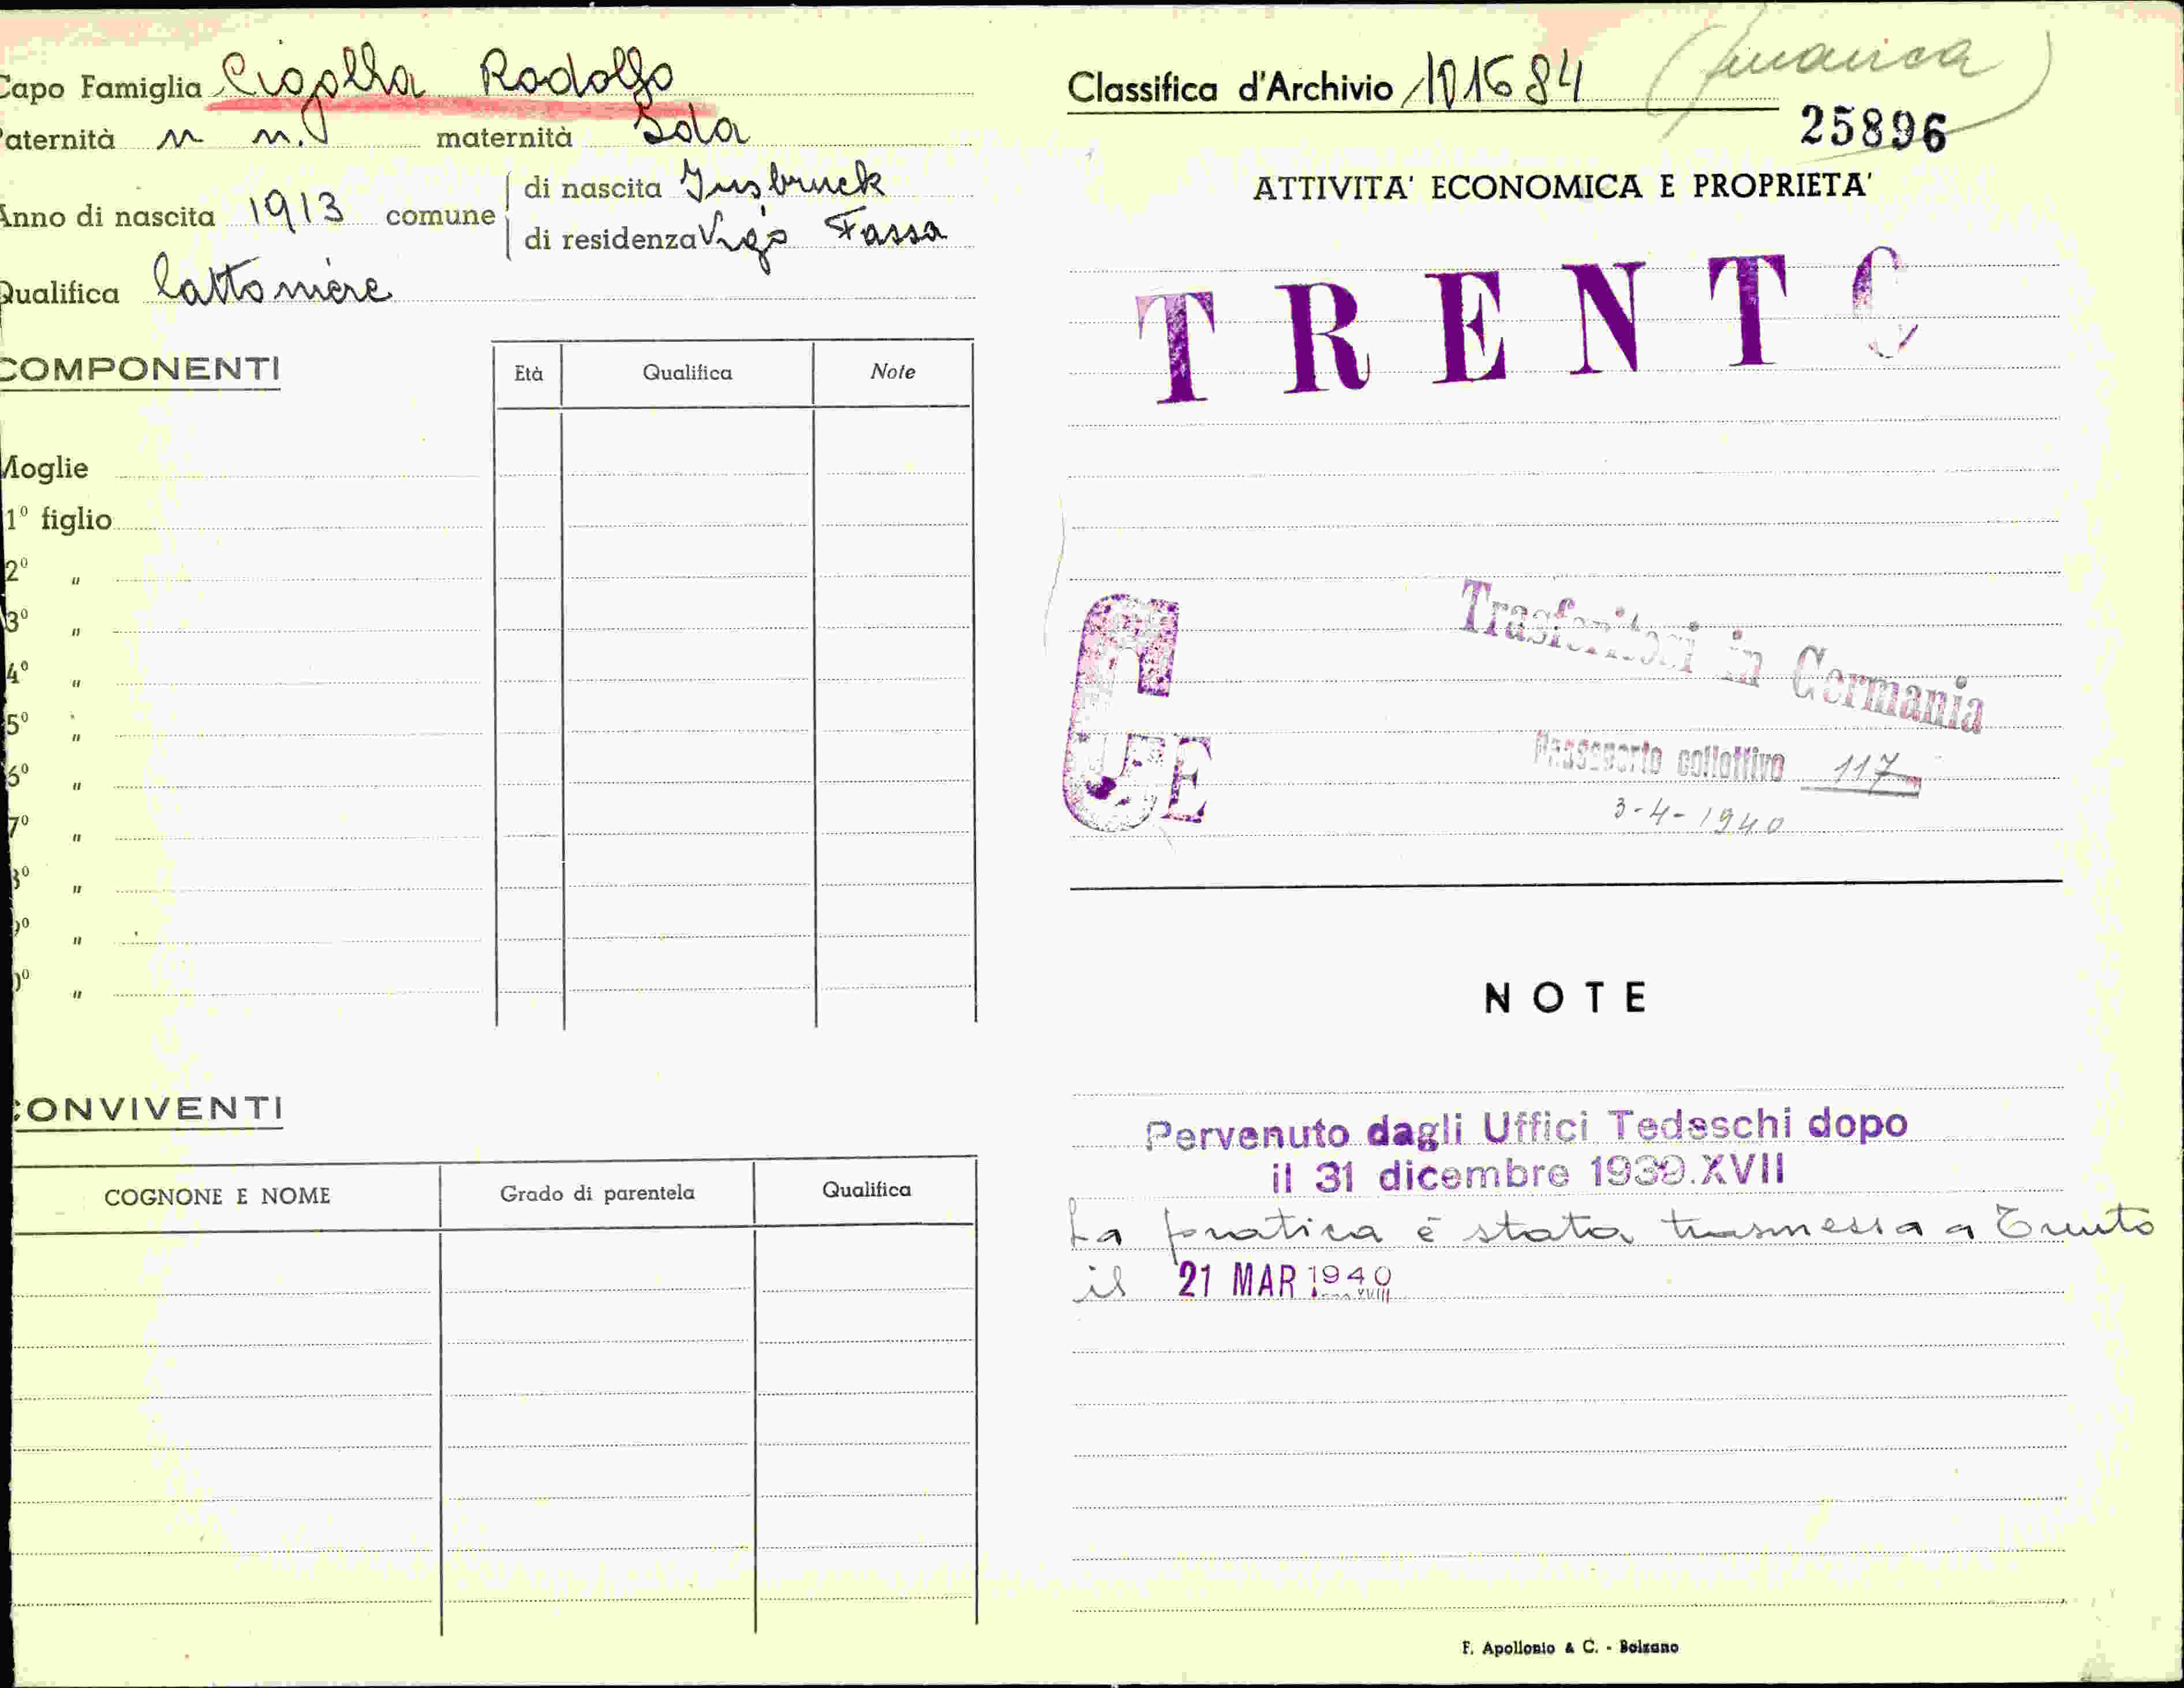 Capo Famiglia Cigolla Rodolfo
Paternità n n. maternità Ida
Anno di nascita 1913 comune di nascita Insbruck
di residenza Vigo Fassa
Qualifica lattoniere
COMPONENTI
Età Qualifica Note
Moglie
1º figlio
2º "
3º "
4º "
5º "
6º "
7º "
8º "
9º "
10º "
CONVIVENTI
COGNONE E NOME Grado di parentela Qualifica
Classifica d'Archivio 101684
25896
ATTIVITA' ECONOMICA E PROPRIETA'
TRENTO
Trasferitosi in Germania
Passaporto collettivo 117
3-4-1940
NOTE
Pervenuto dagli Uffici Tedeschi dopo
il 31 dicembre 1939.XVII
La pratica è stata trasmessa a Trento
il 21 MAR 1940
F. Apollonio & C. - Bolzano